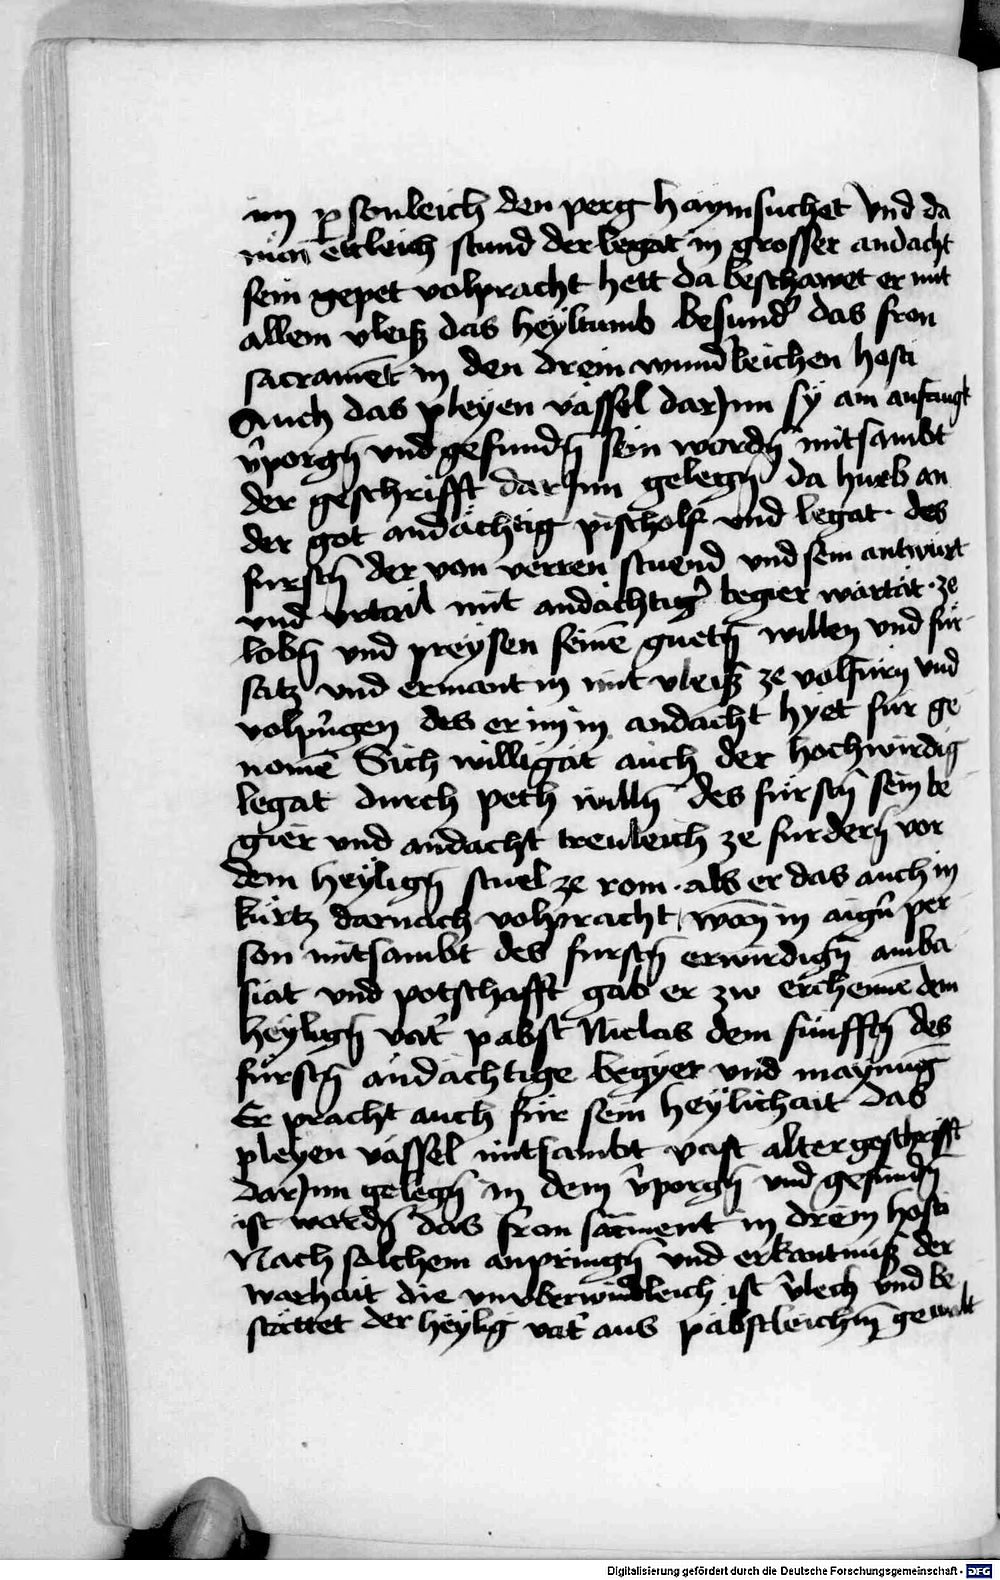 im p̱sonleich den perg haymsuchet Vnd da
nun etleich stund der legat in grosser andacht
sein gepet volpracht hett da beschawet er mit
allem vleiß das heyltumb besund̉ das fron
sacramēt in den drein wund̉leichen hosti
Auch das pleyen vässel darJnn sy am anfangk
v̉porgn̄ vnd gefundn̄ sein wordn̄ mitsambt
der geschrifft darJnn gelegn̄ da hueb an
der got andächtig pischolf vnd legat · des
furstn̄ der von verren stuend vnd sein antwurt
vnd vrtail mit andächtig̉ begier wartät · ze
lobn̄ vnd preysen seinē guetn̄ willen vnd für
satz vnd ermant in mit vleiß ze volfürn vnd
volpringen des er im in andacht hyet für ge
nomē Sich willigät auch der hochwirdig
legat durch peth willn̄ des fürstn̄ sein be
gier vnd andacht treuleich ze furdern̄ vor
dem heylign̄ stuel ze rom · als er das auch in
kürtz darnach volpracht / wan̄ in aign̉ per
son mitsambt des furstn̄ erwirdign̄ amba
siat vnd potschafft gab er zw erchennē dem
heylign̄ vat̉ pabst Niclas dem fünfftn̄ des
fürstn̄ andächtige begyer vnd maynung
Er pracht auch für sein heylichait das
pleyen vässel mitsambt vast alter geschrifft
darJnn gelegn̄ in dem v̉porgn̄ vnd gefundn̄
ist wordn̄ das fron sacment in drein hosti
Nach solchem anpringn̄ vnd erkantnuß der
warhait die vnuberwindleich ist v̉lech vnd be
stättet der heylig vat̉ aus päbstleichm̄ gewalt
Digitalisierung gefördert durch die Deutsche Forschungsgemeinschaft - DFG